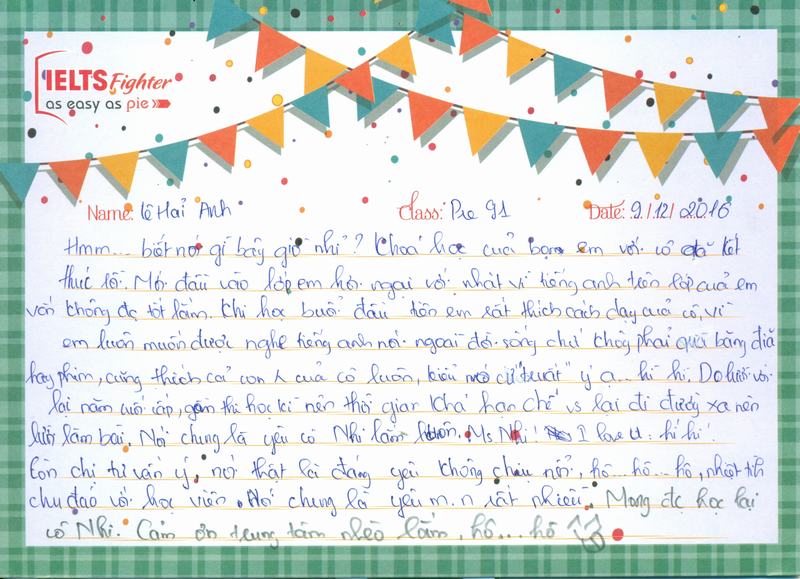 IELTS Fighter
as easy as pie
Name: Lê Hải Anh Class: Pre 91 Date: 9/12/2016
Hmm... biết nói gì bây giờ nhỉ? Khoá học của bọn em với cô đã kết
thúc rồi. Mới đầu vào lớp em hơi ngại với nhát vì tiếng anh trên lớp của em
vốn không đc tốt lắm. Khi học buổi đầu tiên em rất thích cách dạy của cô, vì
em luôn muốn được nghe tiếng anh nói ngoài đời sống chứ không phải qua băng đĩa
hay phim, cũng thích cả con λ của cô luôn, kiểu nó cứ "tuất" ý ạ... hi hi. Do lười với
lại năm cuối cấp, gần thi học kì nên thời gian khá hạn chế vs lại đi đường xa nên
lười làm bài. Nói chung là yêu cô Nhi lắm luôn. Ms Nhi! I love U. hi hi!
Còn chị tư vấn ý, nói thật là đáng yêu không chịu nổi, hô... hô... hô, nhiệt tình
chu đáo với học viên. Nói chung là yêu m.n rất nhiều. Mong đc học lại
cô Nhi. Cảm ơn trung tâm nhèo lắm, hô... hô ^^